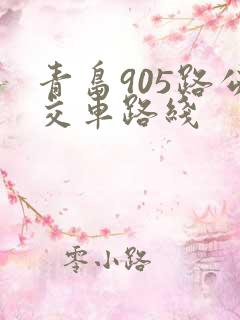 青岛905路公
交车路线
零小路